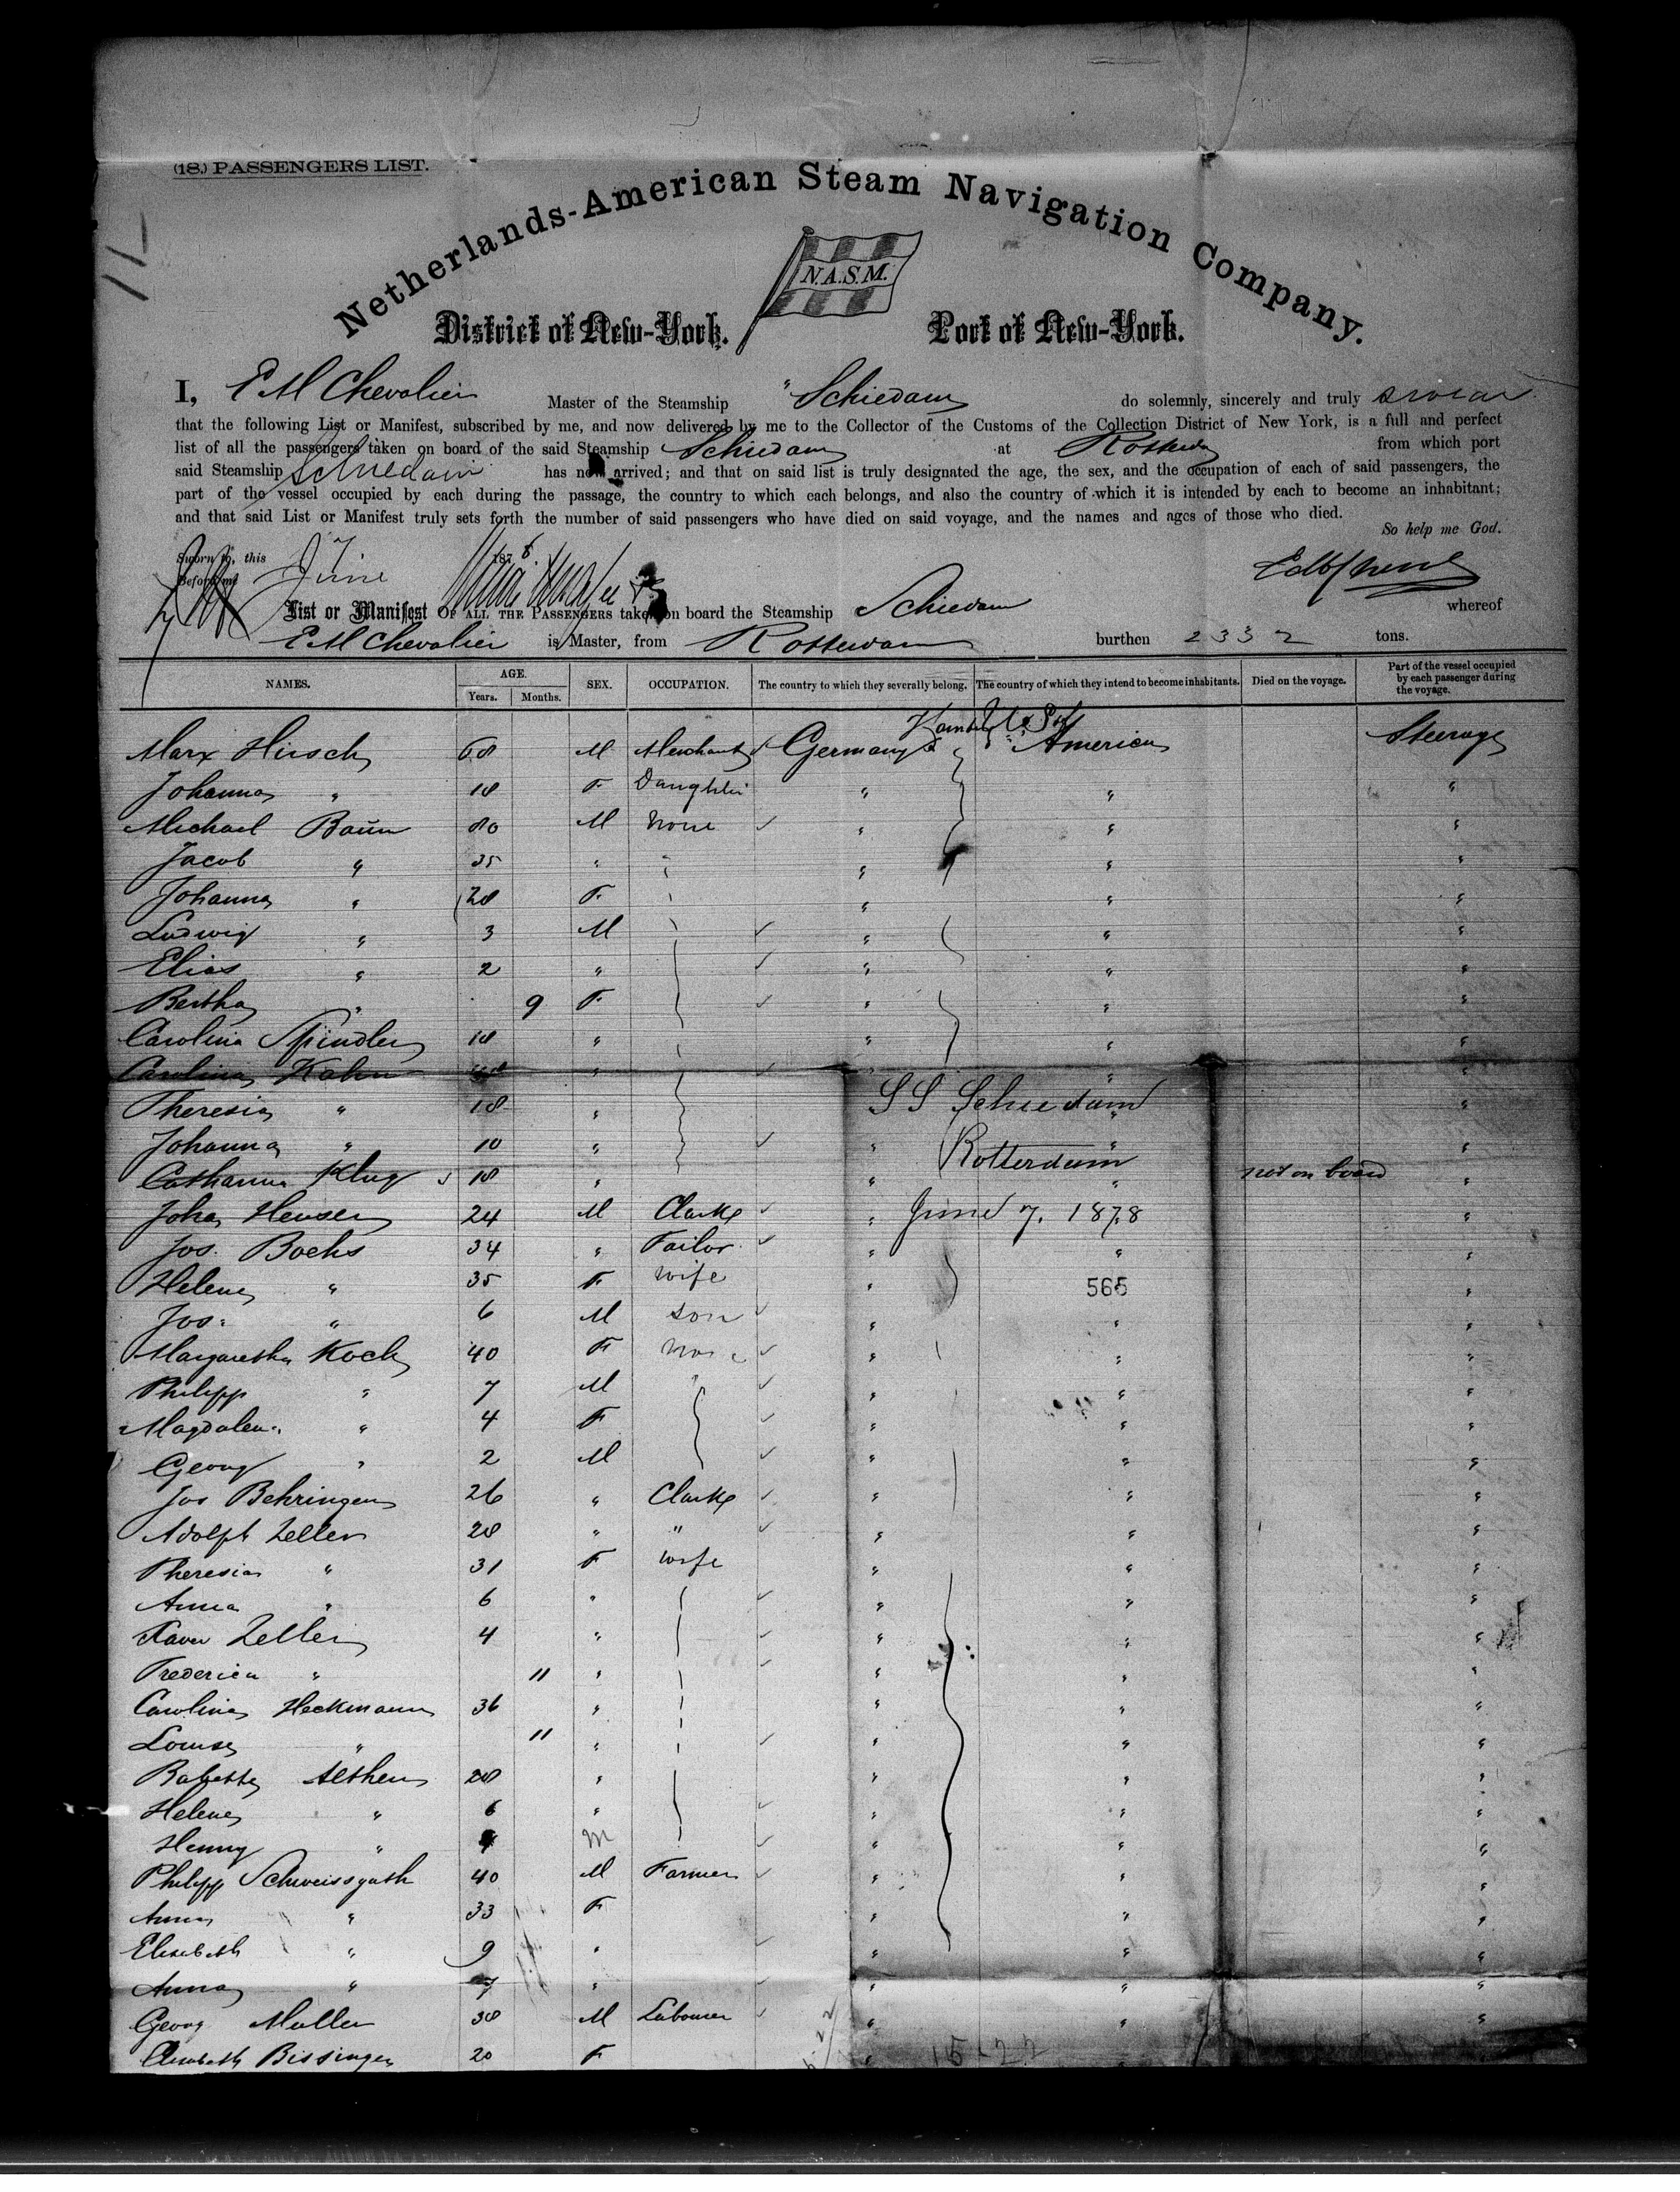 (18.) PASSENGERS LIST.
Netherlands-American Steam Navigation Company.
N.A.S.M.
District of New-York. Port of New-York.
I, E M Chevalier Master of the Steamship "Schiedam do solemnly, sincerely and truly swear
that the following List or Manifest, subscribed by me, and now delivered by me to the Collector of the Customs of the Collection District of New York, is a full and perfect
list of all the passengers taken on board of the said Steamship Schiedam at Rotterdam from which port
said Steamship Schiedam has now arrived; and that on said list is truly designated the age, the sex, and the occupation of each of said passengers, the
part of the vessel occupied by each during the passage, the country to which each belongs, and also the country of which it is intended by each to become an inhabitant;
and that said List or Manifest truly sets forth the number of said passengers who have died on said voyage, and the names and ages of those who died.
So help me God.
Sworn to, this June 1878
Before me
List or Manifest OF ALL THE PASSENGERS taken on board the Steamship Schiedam whereof
E M Chevalier is Master, from Rotterdam burthen 2332 tons.
NAMES. AGE. Years. Months. SEX. OCCUPATION. The country to which they severally belong. The country of which they intend to become inhabitants. Died on the voyage. Part of the vessel occupied by each passenger during the voyage.
Marx Hirsch 68 M Merchant Germany America Steerage
Johanna " 18 F Daughter " " "
Michael Baum 80 M None " " "
Jacob " 35 " " " " "
Johanna " 28 F " " "
Ludwig " 3 M " " "
Elias " 2 " " " "
Bertha " 9 F " " "
Carolina Spindler 18 " " " "
Carolina Kahn " " " "
Theresia " 18 " SS Schiedam " "
Johanna " 10 " " Rotterdam " "
Catharina Klug 18 " " " not on board "
Joha Hensen 24 M Clarke " June 7. 1878 "
Jos. Bochs 34 " Tailor " " "
Helene " 35 F wife " 565 "
Jos. " 6 M son " " "
Margaretha Koch 40 F None " " "
Philipp " 7 M " " " "
Magdalena " 4 F " " "
Georg " 2 M " " "
Jos Behringer 26 " Clarke " " "
Adolph Zeller 28 " " " " "
Theresia " 31 F wife " " "
Anna " 6 " " " "
Xaver Zeller 4 " " " "
Frederica " 11 " " " "
Carolina Heckmann 36 " " " "
Louise " 11 " " " "
Babette 28 " " " "
Helene " 6 " " " "
Henny " M " " "
Philipp Schweissguth 40 M Farmer " " "
Anna " 33 F " " "
Elisabeth " 9 " " " "
Anna " 7 " " " "
Georg Muller 38 M Labourer " " "
Elisabeth Bissinger 20 F " "